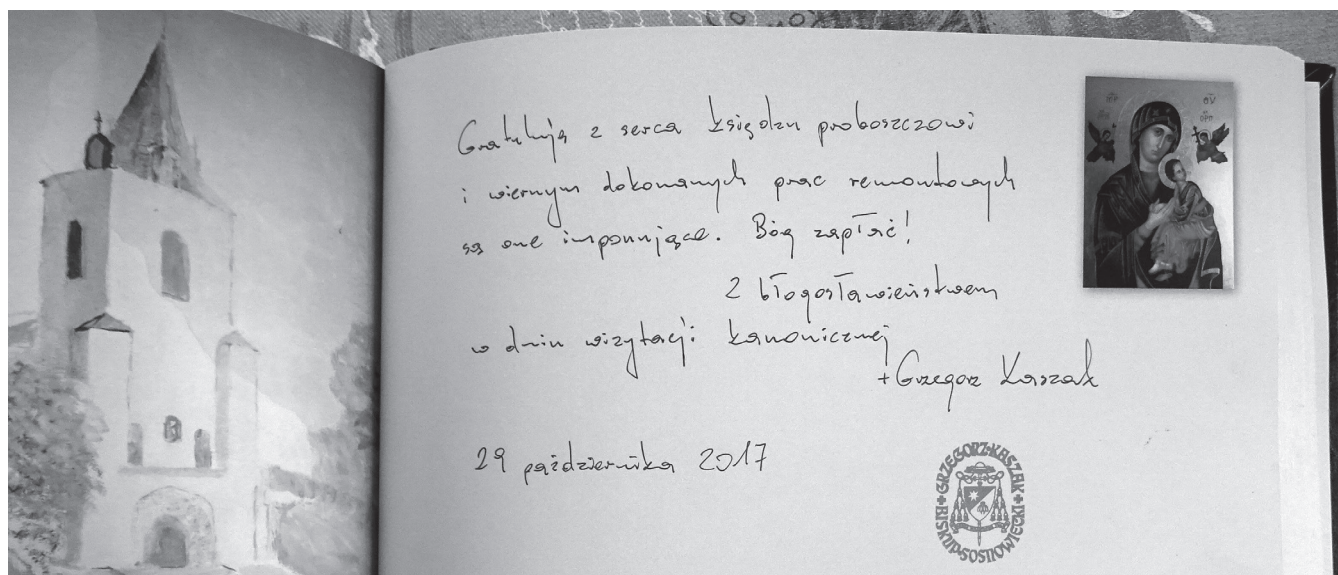 Gratuluję z serca księdzu proboszczowi
i wiernym dokonanych prac remontowych
są one imponujące. Bóg zapłać!
Z błogosławieństwem
w dniu wizytacji kanonicznej
+Grzegorz Kaszak
29 października 2017
GRZEGORZ KASZAK
BISKUP SOSNOWIECKI